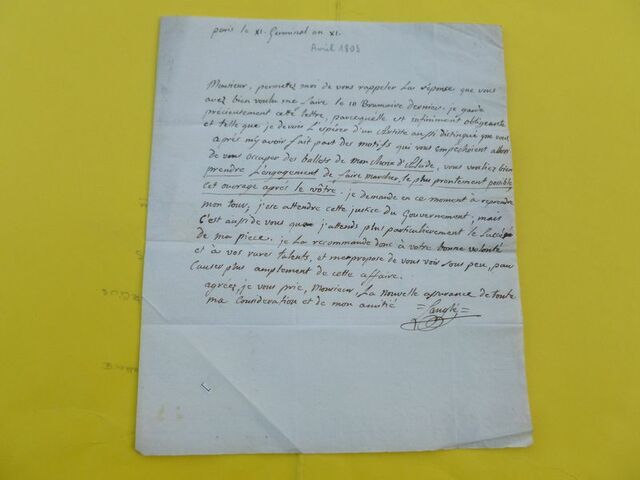 paris le XI. Germinal an XI.
Avril 1803
Monsieur, permettez moi de vous rappeler la réponse que vous
avez bien voulu me faire le 10 Brumaire dernier. je garde
précieusement cette lettre, parcequelle est infiniment obligeante
et telle que je devois L'espérer d'un Artiste aussi distingué que vous
après m'y avoir fait part des motifs qui vous empêchoient alors
de vous occuper des ballets de mon
vous vouliez bien
prendre L'engagement de faire marcher, le plus promtement possible
cet ouvrage après le vôtre. je demande en ce moment à reprendre
mon tour, j'ose attendre cette justice du Gouvernement, mais
C'est aussi de vous que j'attends plus particulierement le Succès
de ma piece. je La recommande donc à votre bonne volonté
et à vos rares talents, et me propose de vous voir sous peu, pour
Causer plus amplement de cette affaire.
agréez, je vous prie, Monsieur, La nouvelle assurance de toute
ma Consideration et de mon amitié
Langlé